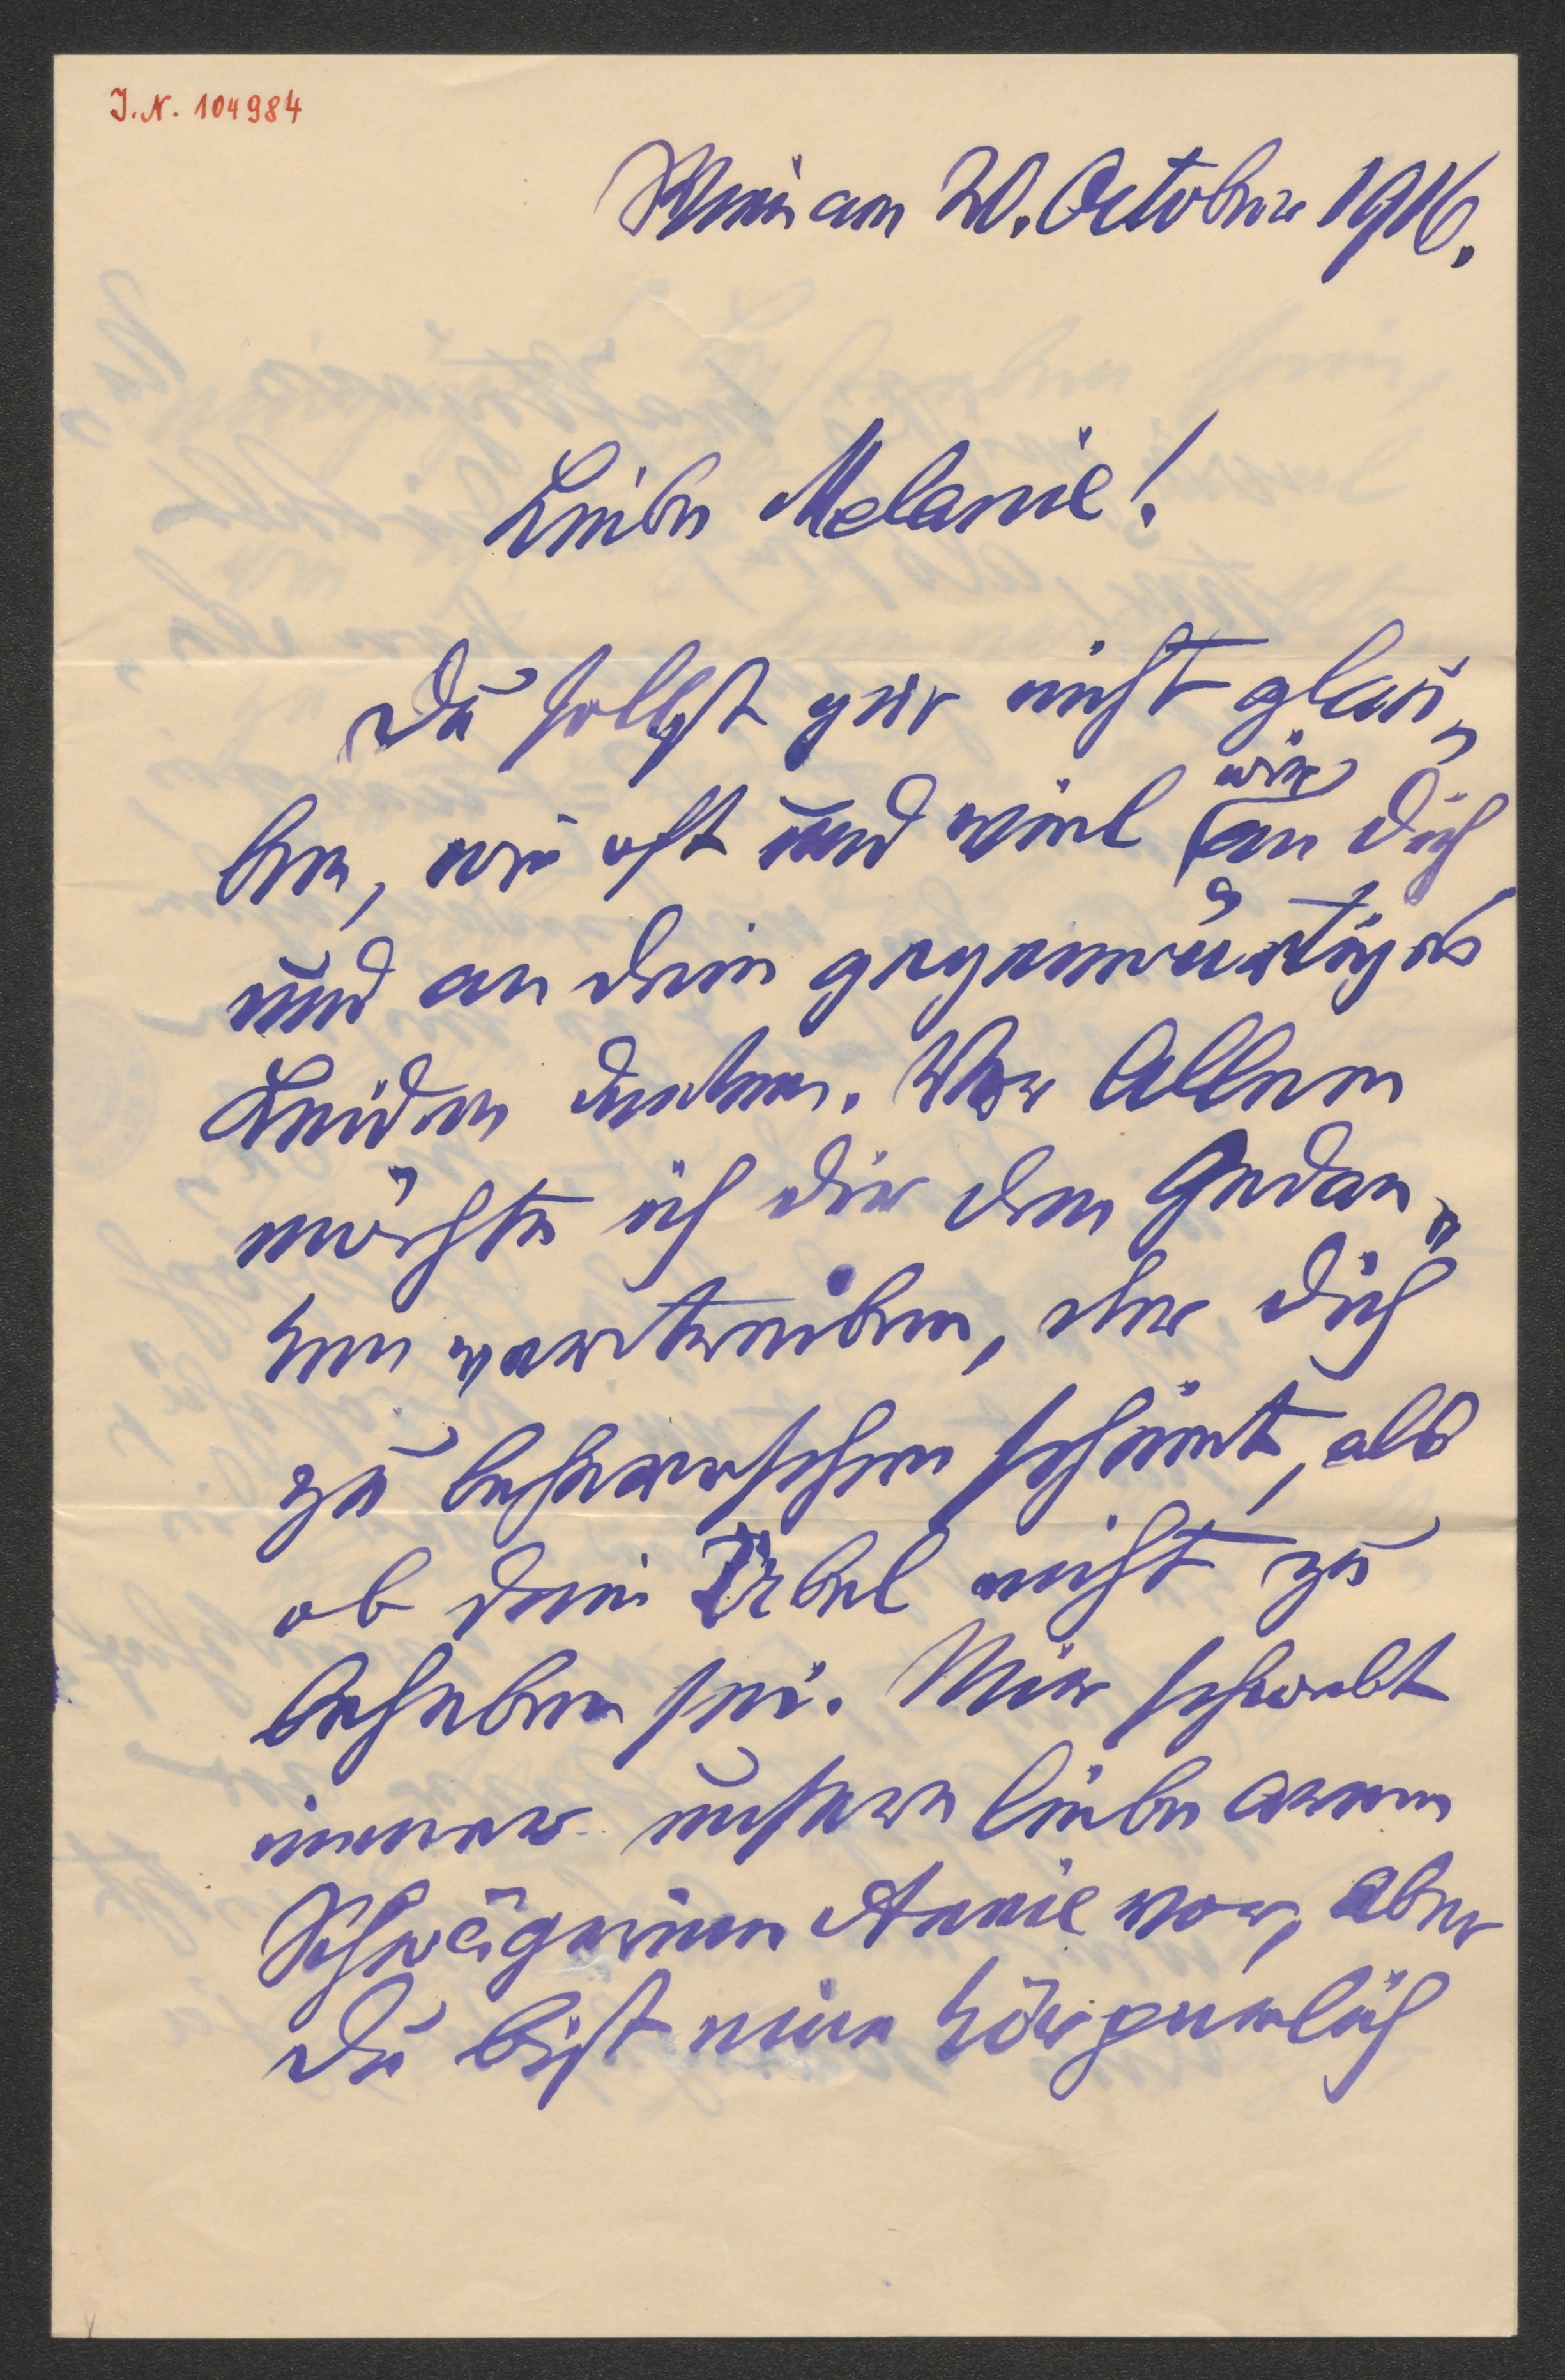 J.N. 104984
Wien am 20. October 1916.
Liebe Melanie!
Du sollst gar nicht glau-
ben, wie oft und viel wir an Dich
und an dein gegenwärtiges
Leiden denken. Vor Allem
möchte ich dir den Gedan-
ken vertreiben, der Dich
zu beherrschen scheint, als
ob dein Uebel nicht zu
beheben sei. Mir schwebt
immer unsere liebe arme
Schwägerinn Annie vor, aber
Du bist eine körperlich